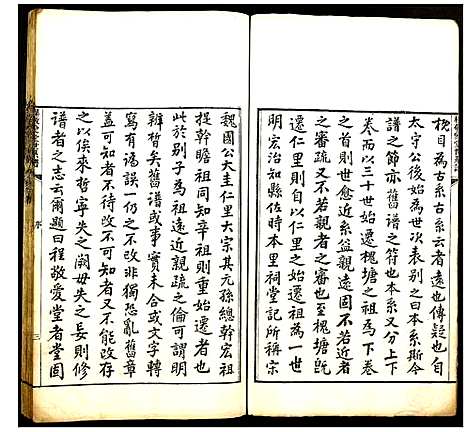 桄目為古系古系云者遠也傳疑也自
太守公後始為世次表别之曰本系斯今
譜之節亦舊譜之符也本系又分上下
卷而以三十世始遷槐塘之祖為下卷
首則世愈近系益親遠固不若近者
之審疏固不若親者之審也至槐塘既
遷仁里則自以仁里之始遷祖為一世
明宏治知縣佐時本里祠堂記所稱宗
魏國公大圭仁里大宗其元孫總幹宏祖
幹瞻祖同辛祖則重始遷者也
此於别子為祖遠近親疏之倫可謂明
辨晳矣舊譜或事實未合或文字轉
寫有譌誤一仍之不改非獨恐亂舊章
蓋可知者不待改不可知者又不能改存
之以俟來哲寧失之闕毋失之妄則修
譜者之志云爾題曰程敬愛堂者堂固
序
三